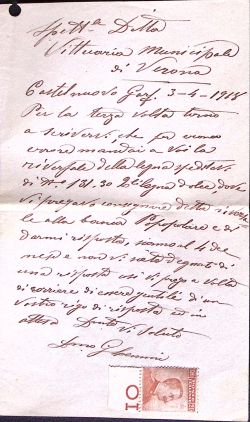 Spett.le Ditta
Vittuaria Municipale
di Verona
Castelnuovo Garf. 3-4-1918
Per la terza volta torno
a scriverci che per
errore mandai a Voi la
riversale della legna speditavi
di 131.30 legno dolce dove
vi pregavo consegnare detta
alla banca Popolare e di
darmi risposta, siamo al 4 del
mese e non vi siete degnati di
una risposta vi prego a volta
di corriere di essere gentili d'un
vostro rigo di risposta ed in
attesa vi saluto